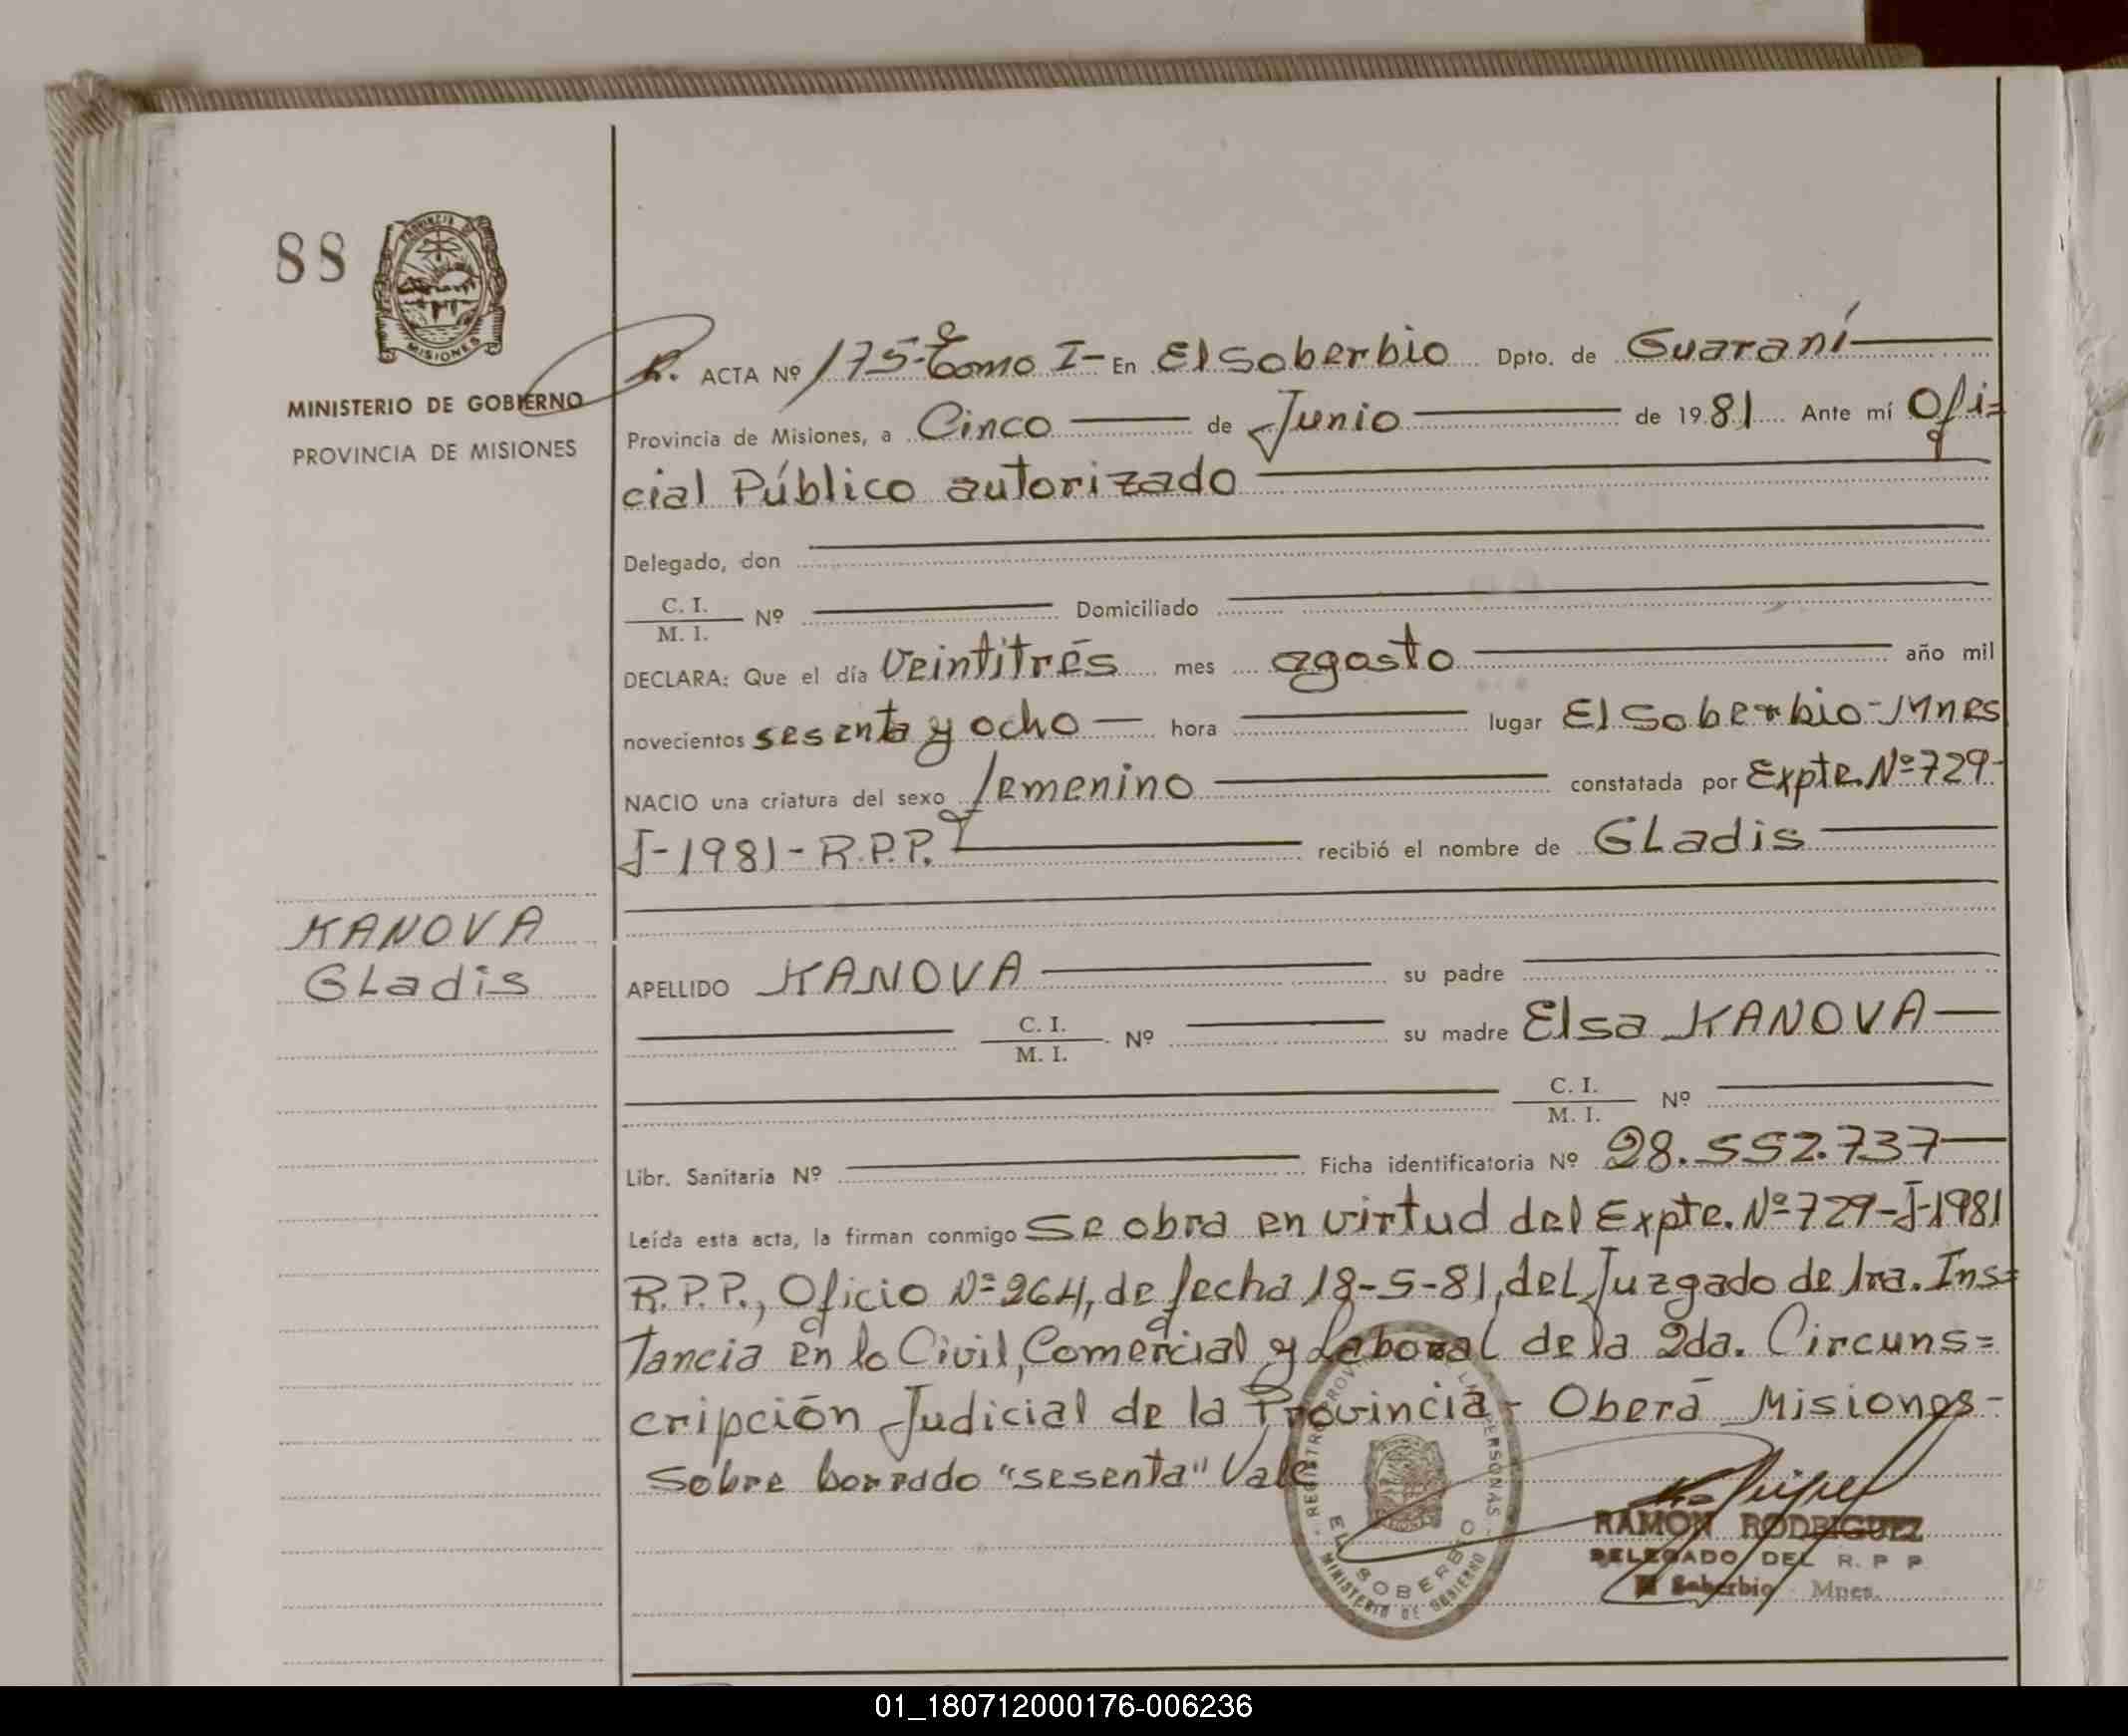 88
PROVINCIA DE
MISIONES
MINISTERIO DE GOBIERNO
PROVINCIA DE MISIONES
KANOVA
GLadis
R. ACTA Nº 175-Tomo I- En El Soberbio Dpto. de Guaraní
Provincia de Misiones, a Cinco de Junio de 1981 Ante mí Ofi=
cial Público autorizado
Delegado, don
C. I. / M. I. Nº Domiciliado
DECLARA: Que el día Veintitrés mes agosto año mil
novecientos sesenta y ocho hora lugar El Soberbio-Mnes
NACIO una criatura del sexo femenino constatada por Expte. Nº 729-
J-1981-R.P.P. recibió el nombre de GLadis
APELLIDO KANOVA su padre
C. I. / M. I. Nº su madre Elsa KANOVA
C. I. / M. I. Nº
Libr. Sanitaria Nº Ficha identificatoria Nº 28.552.737
Leída esta acta, la firman conmigo Se obra en virtud del Expte. Nº 729-J-1981
R.P.P., Oficio Nº 264, de fecha 18-5-81, del Juzgado de 1ra. Ins=
tancia en lo Civil, Comercial y Laboral de la 2da. Circuns=
cripción Judicial de la Provincia - Oberá Misiones-
Sobre borrado "sesenta" Vale
REGISTRO PROV PERSONAS
EL SOBERBIO
MINISTERIO DE GOBIERNO
RAMON RODRIGUEZ
DELEGADO DEL R. P P.
El Soberbio - Mnes.
01_180712000176-006236